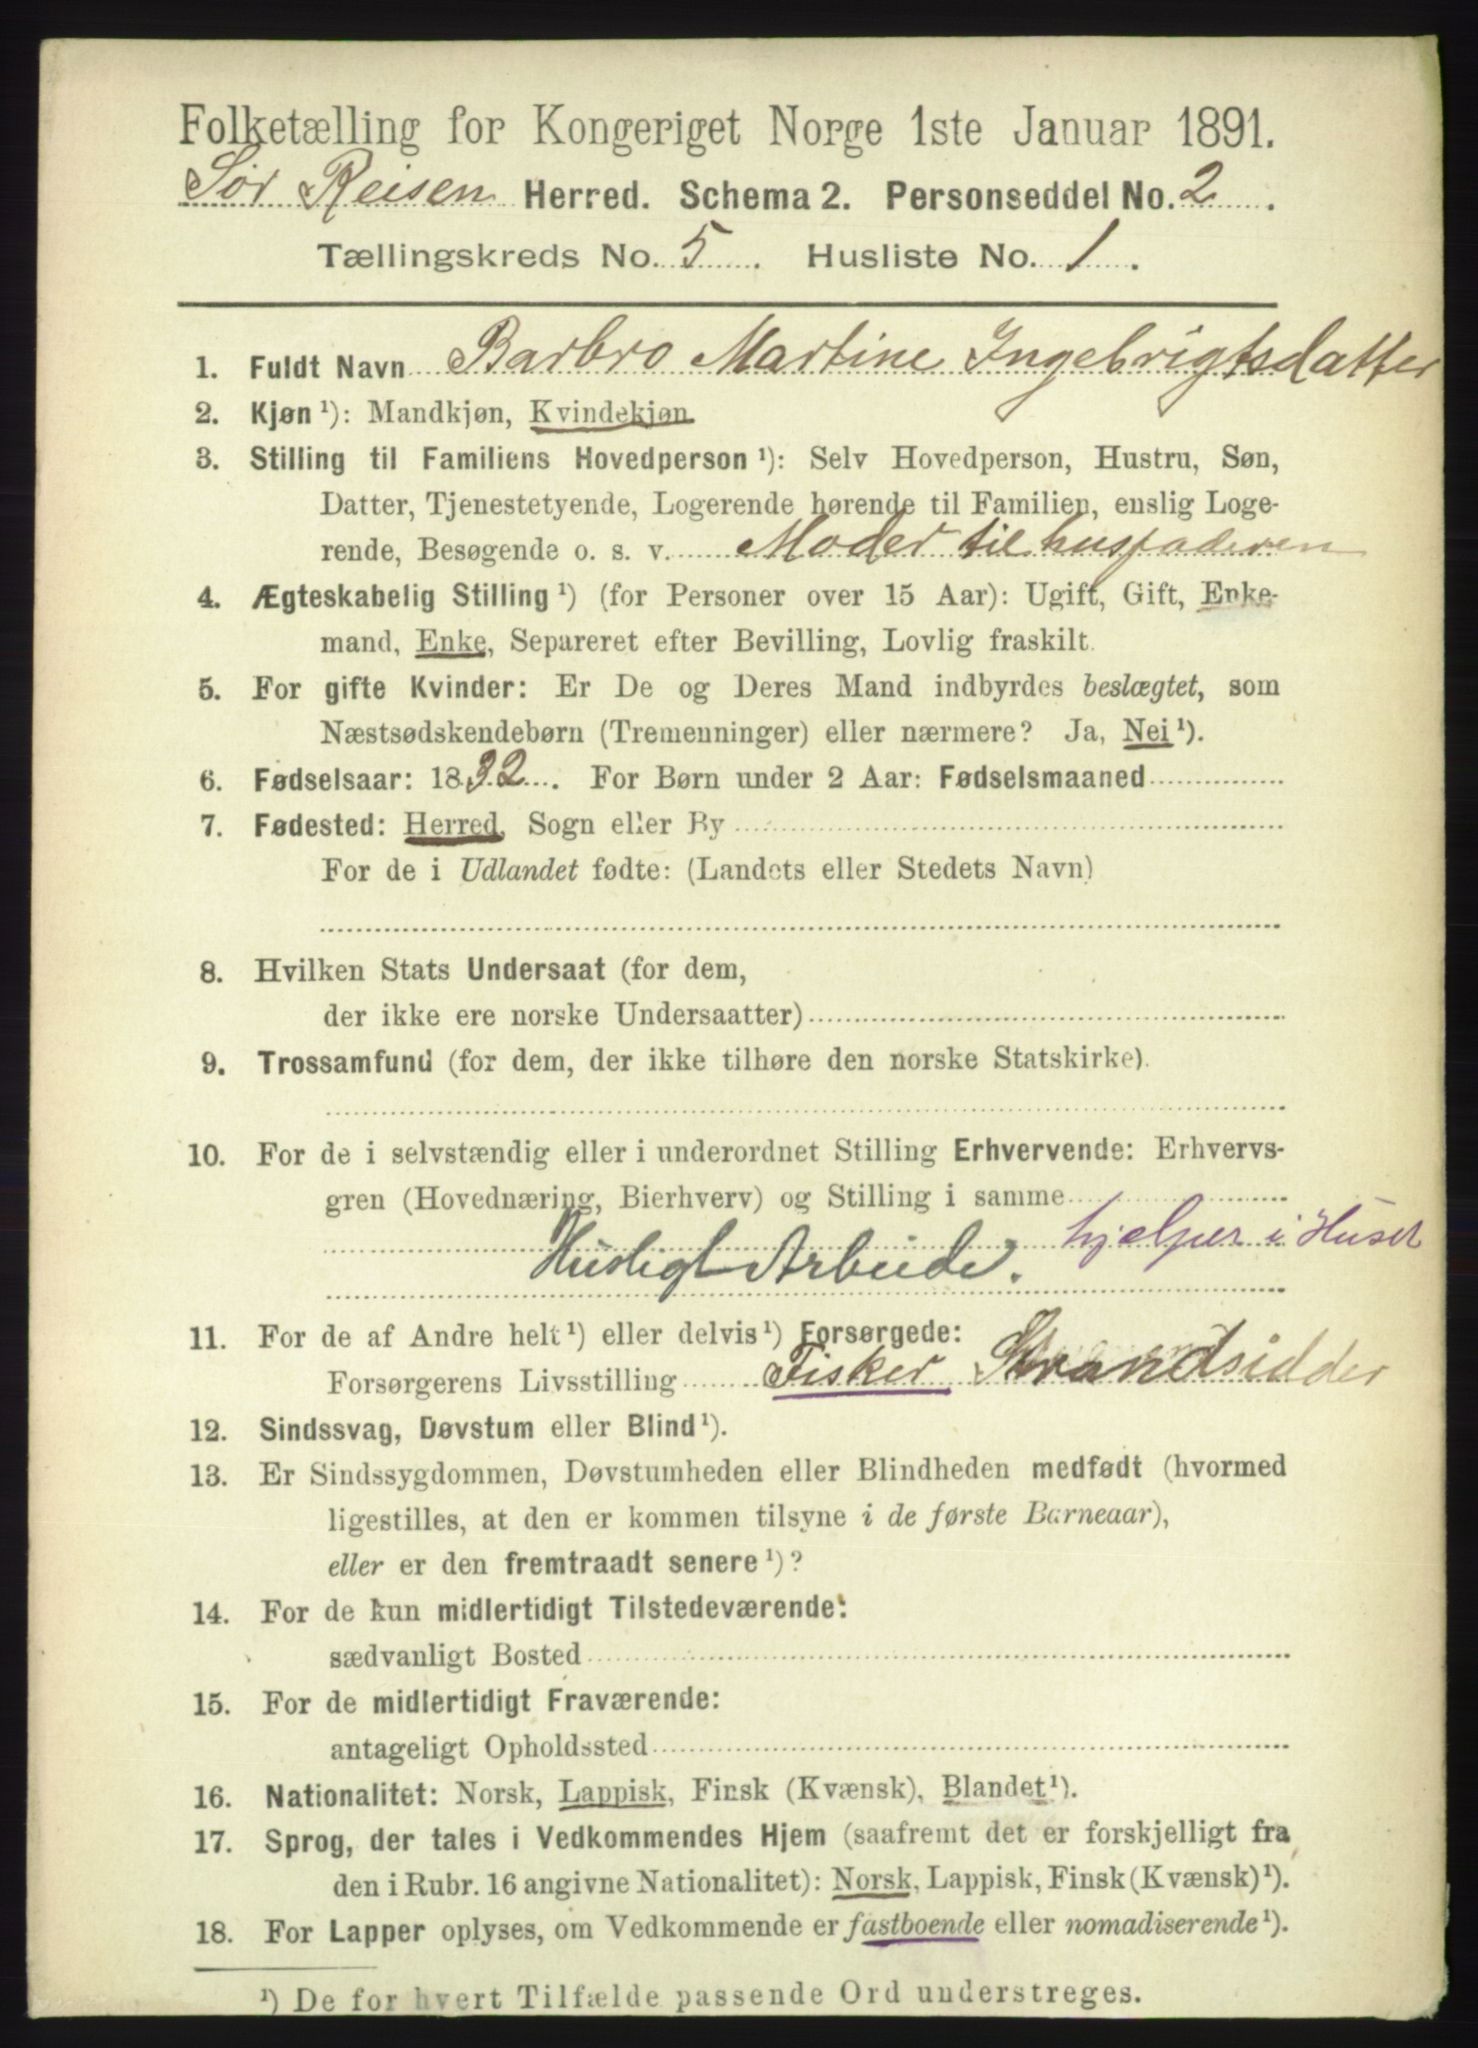 Folketælling for Kongeriget Norge 1ste Januar 1891.
Sør Reisen Herred. Schema 2. Personseddel No. 2.
Tællingskreds No. 5. Husliste No. 1.
1. Fuldt Navn Barbro Martine Ingebrigtsdatter
2. Kjøn ¹): Mandkjøn, Kvindekjøn
3. Stilling til Familiens Hovedperson ¹): Selv Hovedperson, Hustru, Søn,
Datter, Tjenestetyende, Logerende hørende til Familien, enslig Loge-
rende, Besøgende o. s. v. Moder til husfaderen
4. Ægteskabelig Stilling ¹) (for Personer over 15 Aar): Ugift, Gift, Enke-
mand, Enke, Separeret efter Bevilling, Lovlig fraskilt.
5. For gifte Kvinder: Er De og Deres Mand indbyrdes beslægtet, som
Næstsødskendebørn (Tremenninger) eller nærmere? Ja, Nei ¹).
6. Fødselsaar: 1832. For Børn under 2 Aar: Fødselsmaaned
7. Fødested: Herred, Sogn eller By
For de i Udlandet fødte: (Landets eller Stedets Navn)
8. Hvilken Stats Undersaat (for dem,
der ikke ere norske Undersaatter)
9. Trossamfund (for dem, der ikke tilhøre den norske Statskirke).
10. For de i selvstændig eller i underordnet Stilling Erhvervende: Erhvervs-
gren (Hovednæring, Bierhverv) og Stilling i samme
hjelper i Huset
Husligt Arbeide.
11. For de af Andre helt ¹) eller delvis ¹) Forsørgede:
Forsørgerens Livsstilling Fisker Strandsidder
12. Sindssvag, Døvstum eller Blind ¹).
13. Er Sindssygdommen, Døvstumheden eller Blindheden medfødt (hvormed
ligestilles, at den er kommen tilsyne i de første Barneaar),
eller er den fremtraadt senere ¹)?
14. For de kun midlertidigt Tilstedeværende:
sædvanligt Bosted
15. For de midlertidigt Fraværende:
antageligt Opholdssted
16. Nationalitet: Norsk, Lappisk, Finsk (Kvænsk), Blandet ¹).
17. Sprog, der tales i Vedkommendes Hjem (saafremt det er forskjelligt fra
den i Rubr. 16 angivne Nationalitet): Norsk, Lappisk, Finsk (Kvænsk) ¹).
18. For Lapper oplyses, om Vedkommende er fastboende eller nomadiserende ¹).
¹) De for hvert Tilfælde passende Ord understreges.